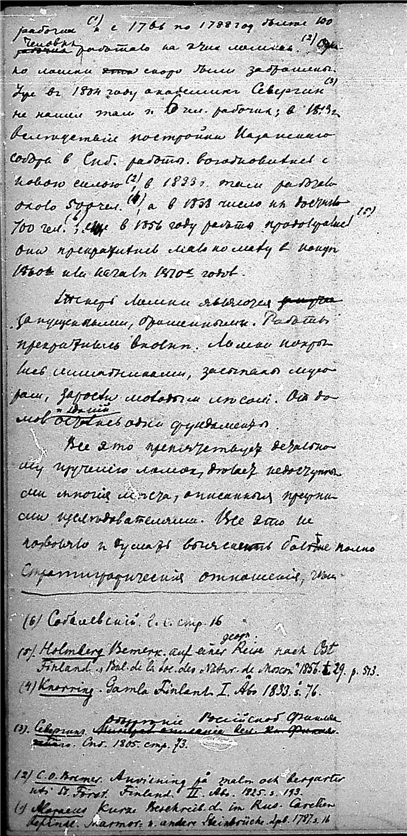 рабочих (1), с 1766 по 1788 год более 100
человек работало на этих ломках. (2)
но ломки скоро были заброшены.
Уже в 1804 году академик Севергин (3)
не нашел там и рабочих; в 18
вследствие постройки Казанского
собора в Спб. работы возобновились с
новою силою (2), в 1833 г. там работало
около 500 чел. (4), а в 1838 число их достигло
700 чел. (6), еще в 1856 году работы продолжались (5)
Они прекратились мало по малу в конце
1860х или начале 1870х годов.
Теперь ломки являются
запущенными, брошенными. Работы
прекратились вовсе. Ломки покры-
лись лишайниками, засыпаны мусо-
ром, заросли молодым лесом. От до-
мов остались одни фундаменты.
Все это препятствует детально-
му изучению ломок, делает недоступны-
ми многие места, описанныя прежни-
ми исследователями. Все это не
позволяло и думать выяснить более полно
стратиграфическия отношения, чем
(6) Соболевский. l. c. стр. 16
(5). Holmberg Bemerk. auf einer geogn. Reise nach Ost
Finland. „Bul. de la soc. des Natur. de Moscou" 1856. t. 29. p. 513.
(4) Knorring. Gamla Finland. I. Åbo 1833. s. 76.
(3). Севергин. Обозрение Российской Финлян
Спб. 1805. стр. 73.
(2) C. O. Bremer. Anvisning på malm och bergarter
uti St. Först. Finland. II. Åbo. 1825. s. 193.
(1) Beschreib. d. im Rus. Carelien
Marmor. u. andere Steinbrüche. Spb. 1787. s. 16